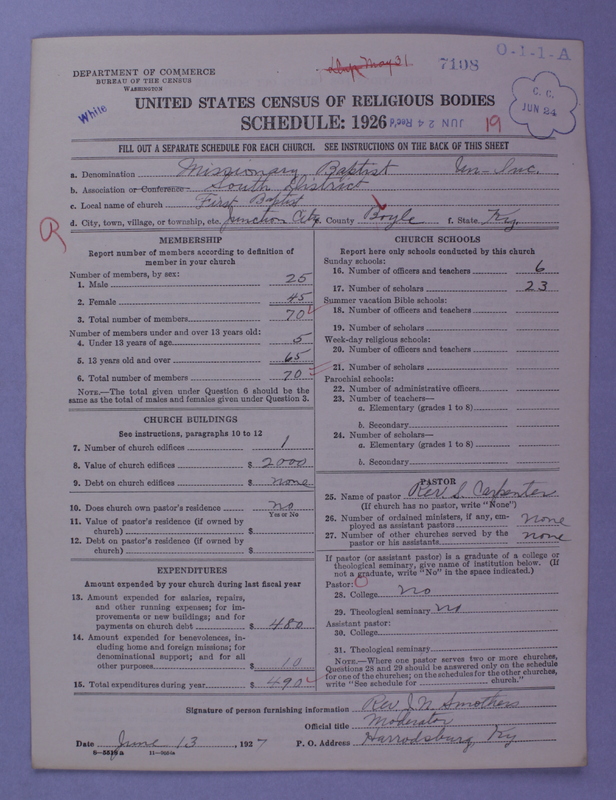 DEPARTMENT OF COMMERCE
BUREAU OF THE CENSUS
WASHINGTON
May 31
7198
O-1-1-A
White
C. C.
JUN 24
UNITED STATES CENSUS OF RELIGIOUS BODIES
SCHEDULE: 1926
JUN 24 Rec'd
19
FILL OUT A SEPARATE SCHEDULE FOR EACH CHURCH. SEE INSTRUCTIONS ON THE BACK OF THIS SHEET
a. Denomination Missionary Baptist Un-Inc.
b. Association or Conference South District
c. Local name of church First Baptist
d. City, town, village, or township, etc. Junction City e. County Boyle f. State Ky
R
MEMBERSHIP
Report number of members according to definition of
member in your church
Number of members, by sex:
1. Male 25
2. Female 45
3. Total number of members 70
Number of members under and over 13 years old:
4. Under 13 years of age 5
5. 13 years old and over 65
6. Total number of members 70
NOTE.—The total given under Question 6 should be the
same as the total of males and females given under Question 3.
CHURCH BUILDINGS
See instructions, paragraphs 10 to 12
7. Number of church edifices 1
8. Value of church edifices $ 2000
9. Debt on church edifices $ none
10. Does church own pastor's residence no
Yes or No
11. Value of pastor's residence (if owned by
church) $
12. Debt on pastor's residence (if owned by
church) $
EXPENDITURES
Amount expended by your church during last fiscal year
13. Amount expended for salaries, repairs,
and other running expenses; for im-
provements or new buildings; and for
payments on church debt $ 480
14. Amount expended for benevolences, in-
cluding home and foreign missions; for
denominational support; and for all
other purposes $ 10
15. Total expenditures during year $ 490
CHURCH SCHOOLS
Report here only schools conducted by this church
Sunday schools:
16. Number of officers and teachers 6
17. Number of scholars 23
Summer vacation Bible schools:
18. Number of officers and teachers
19. Number of scholars
Week-day religious schools:
20. Number of officers and teachers
21. Number of scholars
Parochial schools:
22. Number of administrative officers
23. Number of teachers—
a. Elementary (grades 1 to 8)
b. Secondary
24. Number of scholars—
a. Elementary (grades 1 to 8)
b. Secondary
PASTOR
25. Name of pastor Rev. S. Carpenter
(If church has no pastor, write "None")
26. Number of ordained ministers, if any, em-
ployed as assistant pastors none
27. Number of other churches served by the
pastor or his assistants none
If pastor (or assistant pastor) is a graduate of a college or
theological seminary, give name of institution below. (If
not a graduate, write "No" in the space indicated.)
Pastor:
28. College no
29. Theological seminary no
Assistant pastor:
30. College
31. Theological seminary
NOTE.—Where one pastor serves two or more churches,
Questions 28 and 29 should be answered only on the schedule
for one of the churches; on the schedules for the other churches,
write "See schedule for church."
Signature of person furnishing information Rev. J. N. Smothers
Official title Moderator
Date June 13, 1927 P. O. Address Harrodsburg, Ky